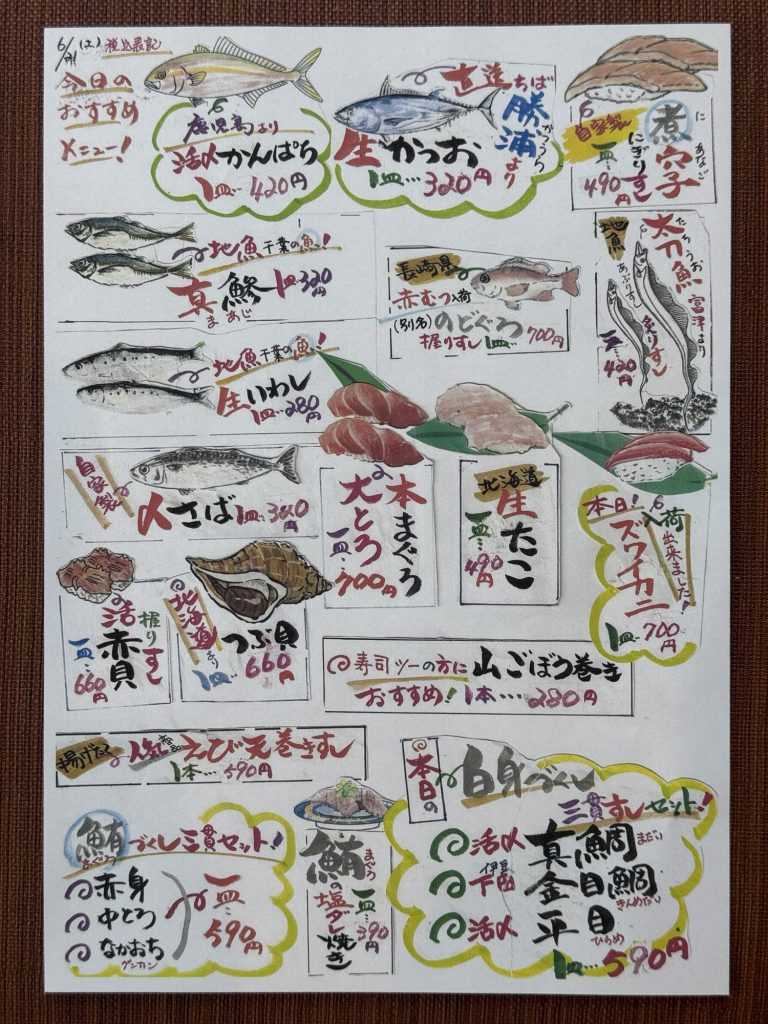 (土) 税込表記
今日の
おすすめ
メニュー!
鹿児島より
活〆かんぱち
1皿…420円
直送ちば
勝浦より
かつうら
生かつお
1皿…320円
煮穴子
に あなご
にぎりすし
自家製
一皿…490円
地魚千葉の魚!
真鯵 1皿320円
まあじ
長崎県
赤むつ入荷
(別名)のどぐろ
握りすし 1皿…700円
地魚
太刀魚
たちうお
富津より
炙りすし
あぶりすし
一皿…420円
地魚千葉の魚!
生いわし
1皿…280円
自家製
〆さば 1皿…320円
本まぐろ
大とろ
一皿…700円
北海道
生たこ
一皿…490円
本日!
入荷出来ました!
ズワイカニ
1皿…700円
握りすし
活赤貝
一皿…660円
北海道より
つぶ貝
1皿…660円
寿司ツーの方に 山ごぼう巻き
おすすめ! 1本…280円
揚げたて 人気商品 えび天巻きすし
1本…590円
鮪づくし三貫セット!
まぐろ
赤身
中とろ
なかおち
グンカン
一皿…590円
鮪の塩ダレ焼き
まぐろ
一皿…390円
本日の
白身づくし
三貫すしセット!
活〆 真鯛
まだい
伊豆
下田 金目鯛
きんめだい
活〆 平目
ひらめ
1皿…590円